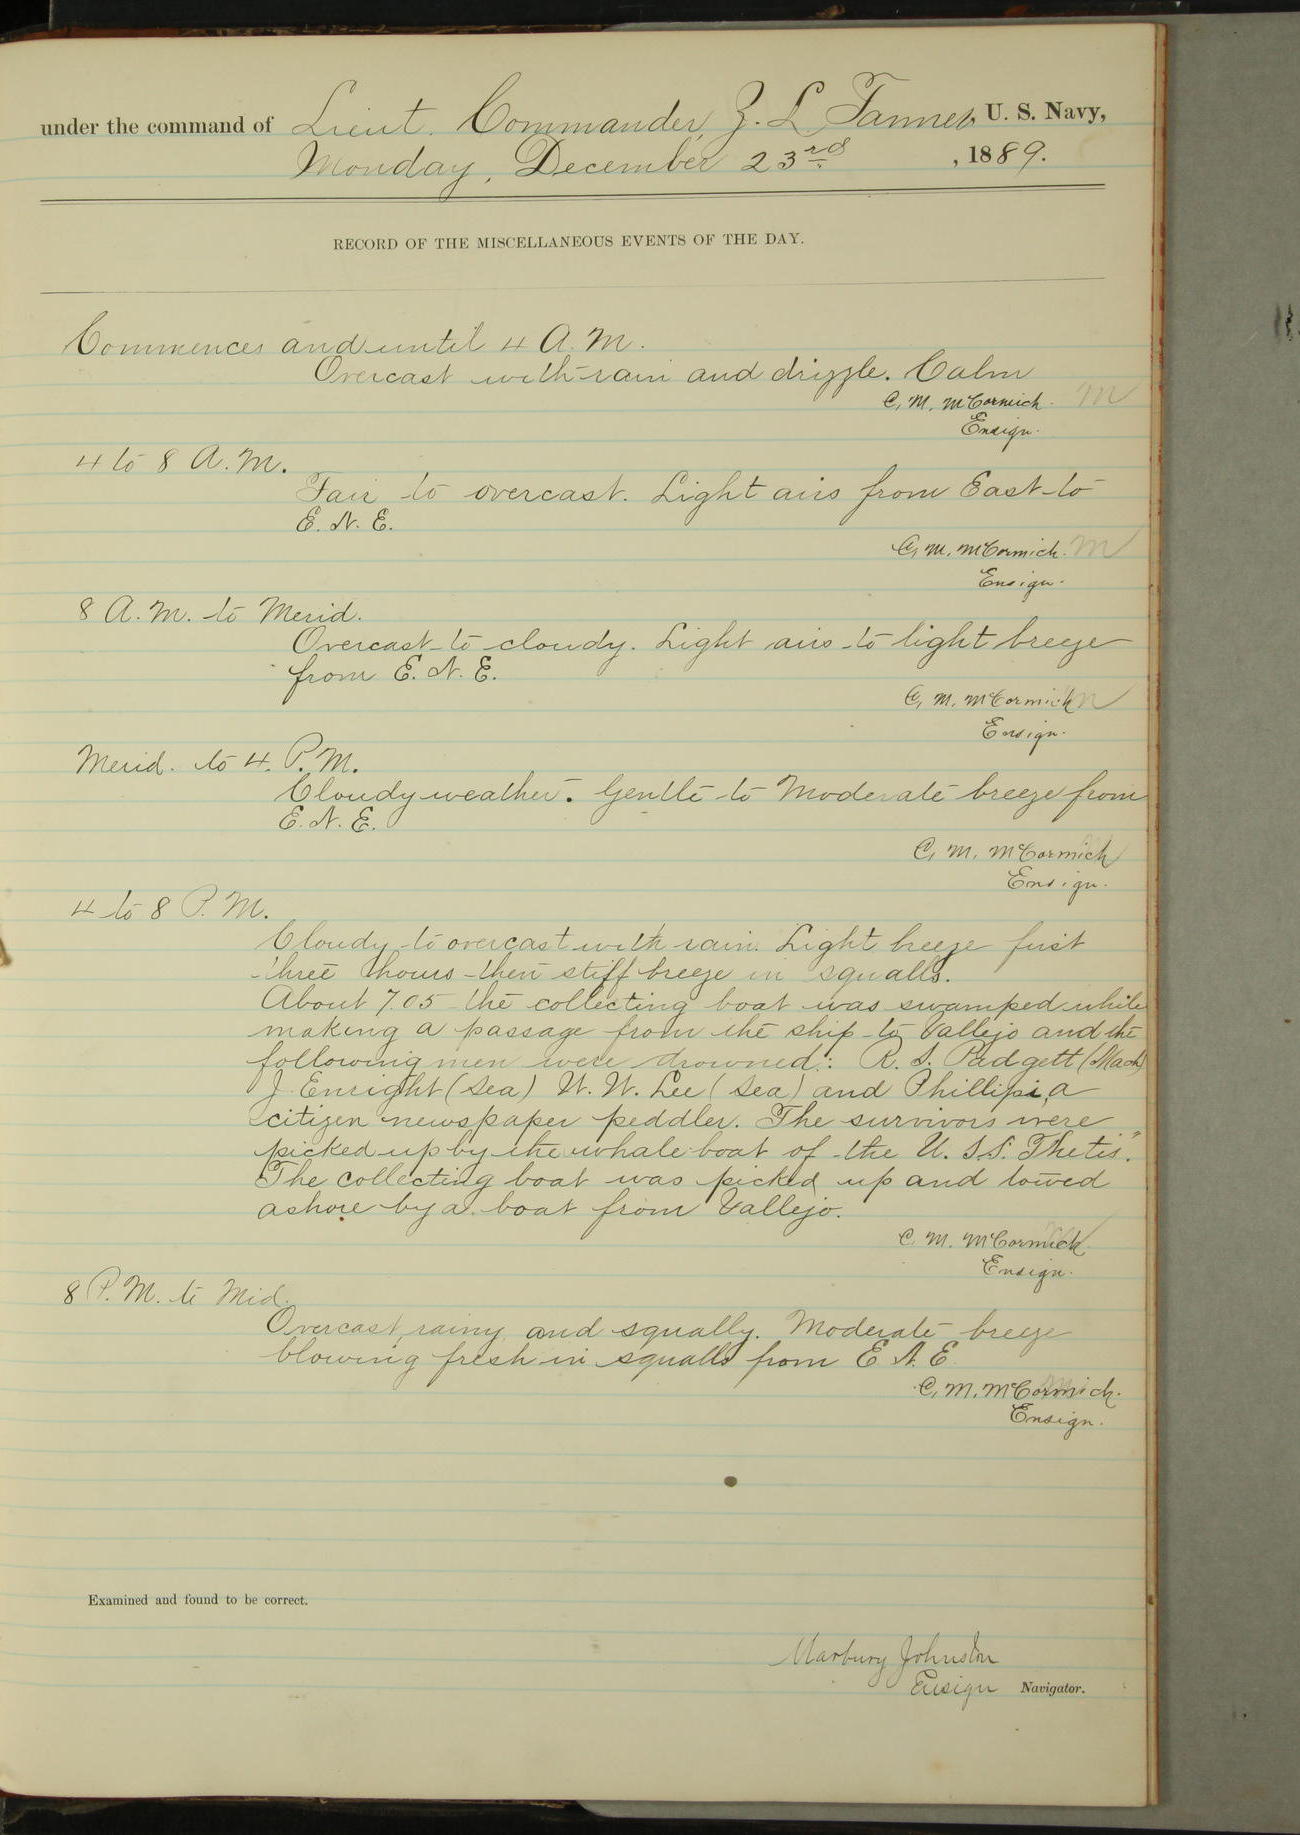 under the command of Lieut. Commander, Z. L. Tanner, U. S. Navy,
Monday, December 23rd, 1889.
RECORD OF THE MISCELLANEOUS EVENTS OF THE DAY.
Commences and until 4 A. M.
Overcast with rain and drizzle. Calm
C. M. McCormick.
Ensign.
4 to 8 A. M.
Fair to overcast. Light airs from East to
E. N. E.
C. M. McCormick.
Ensign.
8 A. M. to Merid.
Overcast to cloudy. Light airs to light breeze
from E. N. E.
C. M. McCormick
Ensign.
Merid. to 4. P. M.
Cloudy weather. Gentle to Moderate breeze from
E. N. E.
C. M. McCormick
Ensign.
4 to 8 P. M.
Cloudy to overcast with rain. Light breeze first
three hours then stiff breeze in squalls.
About 7.05 the collecting boat was swamped while
making a passage from the ship to Vallejo and the
following men were drowned: R. S. Padgett (Mach)
J. Enright (Sea) W. W. Lee (Sea) and Phillipi, a
citizen newspaper peddler. The survivors were
picked up by the whale boat of the U. S. S. Thetis."
The collecting boat was picked up and towed
ashore by a boat from Vallejo.
C. M. McCormick.
Ensign.
8 P. M. to Mid.
Overcast, rainy and squally. Moderate breeze
blowing fresh in squalls from E N. E
C. M. McCormick.
Ensign.
Examined and found to be correct.
Marbury Johnston
Ensign Navigator.